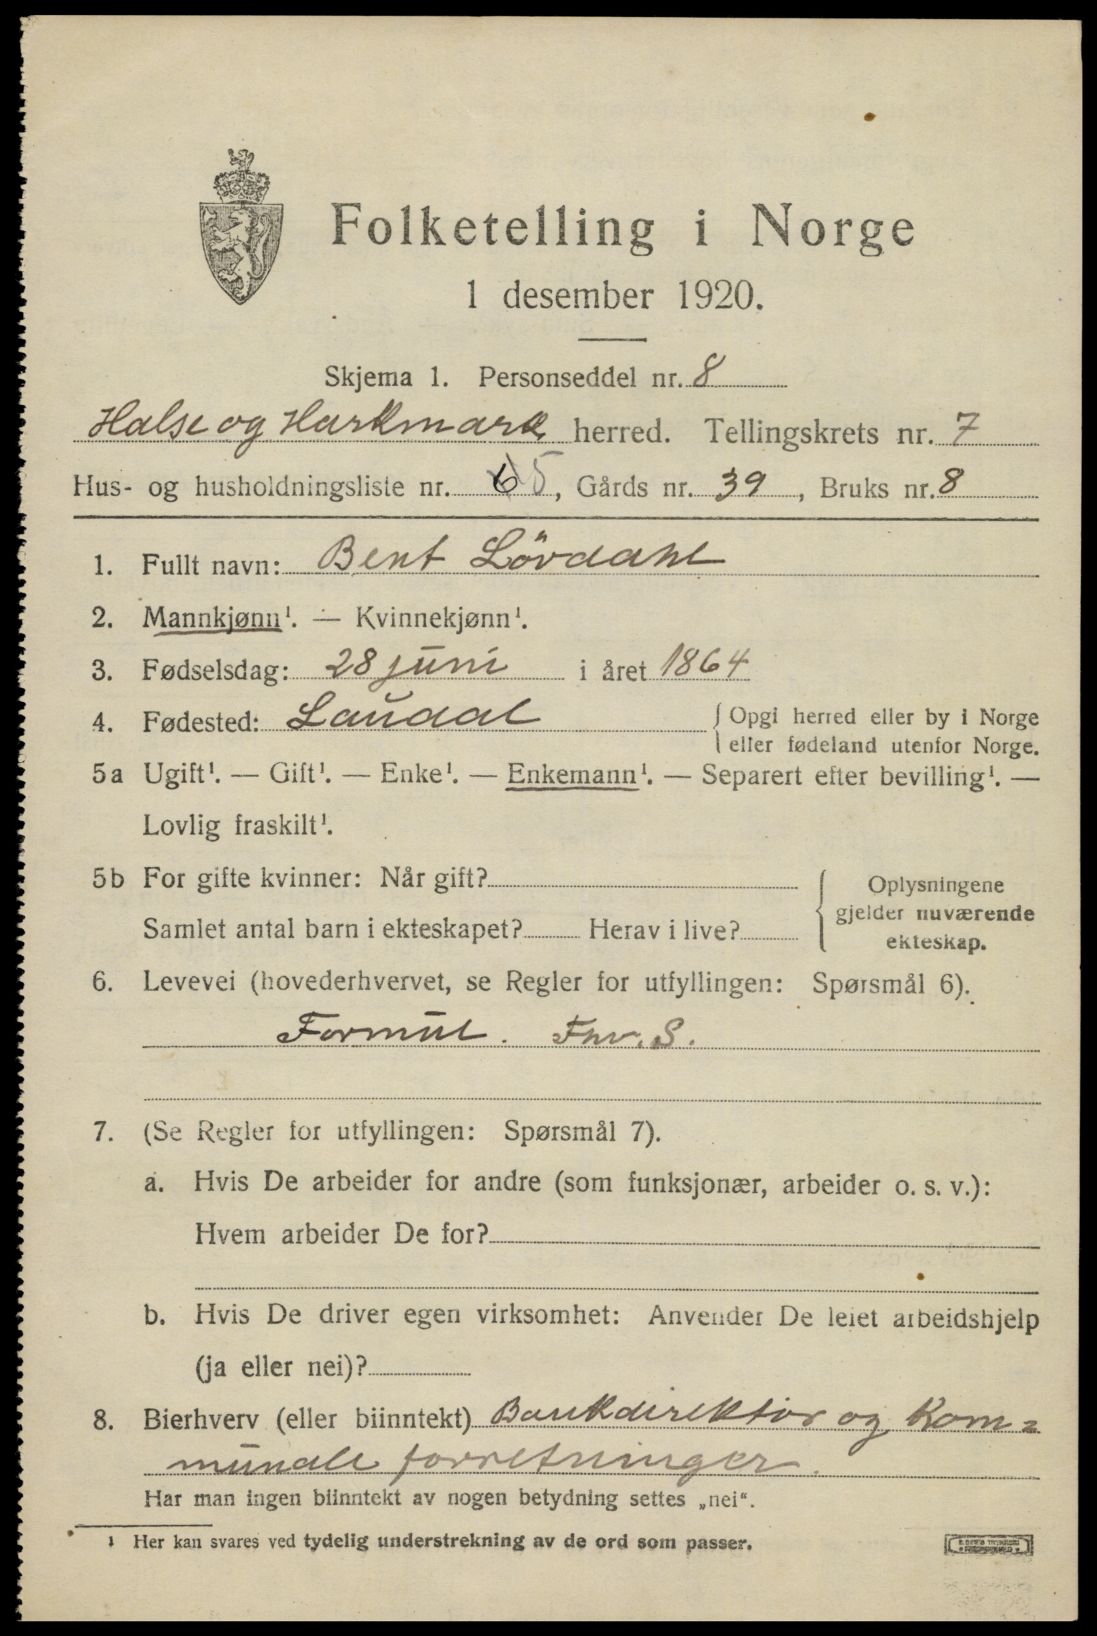 Folketelling i Norge
1 desember 1920.
Skjema 1. Personseddel nr. 8
Halse og Harkmark herred. Tellingskrets nr. 7
Hus- og husholdningsliste nr. 5, Gårds nr. 39, Bruks nr. 8
1. Fullt navn: Bent Lövdahl
2. Mannkjønn¹. — Kvinnekjønn¹.
3. Fødselsdag: 28 juni i året 1864
4. Fødested: Laudal
{ Opgi herred eller by i Norge
eller fødeland utenfor Norge.
5a Ugift¹. — Gift¹. — Enke¹. — Enkemann¹. — Separert efter bevilling¹. —
Lovlig fraskilt¹.
5b For gifte kvinner: Når gift?
Samlet antal barn i ekteskapet? Herav i live?
{ Oplysningene
gjelder nuværende
ekteskap.
6. Levevei (hovederhvervet, se Regler for utfyllingen: Spørsmål 6).
Formue. S.
7. (Se Regler for utfyllingen: Spørsmål 7).
a. Hvis De arbeider for andre (som funksjonær, arbeider o. s. v.):
Hvem arbeider De for?
b. Hvis De driver egen virksomhet: Anvender De leiet arbeidshjelp
(ja eller nei)?
8. Bierhverv (eller biinntekt) Bankdirektör og Kom=
munale forretninger.
Har man ingen biinntekt av nogen betydning settes „nei“.
¹ Her kan svares ved tydelig understrekning av de ord som passer.